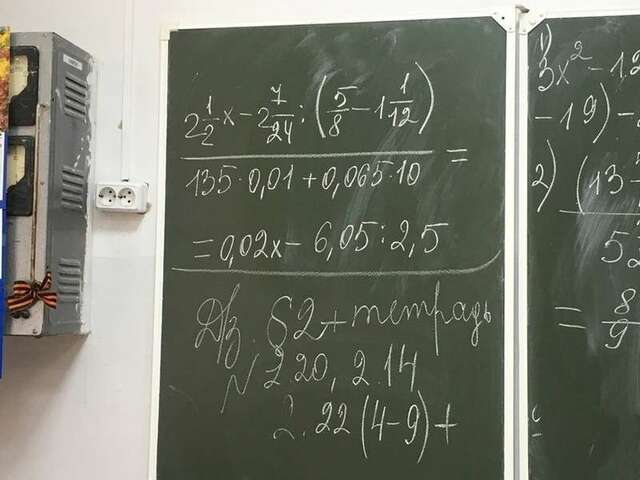 2 1/2 x − 2 7/24 : (5/8 − 1 1/12)
135 · 0,01 + 0,065 · 10 =
= 0,02x − 6,05 : 2,5
Дз. §2 + тетрадь
№ 2.20, 2.14
2.22 (4−9) +
1)
3x² − 12
− 19) −
2) (13
52
= 8/9